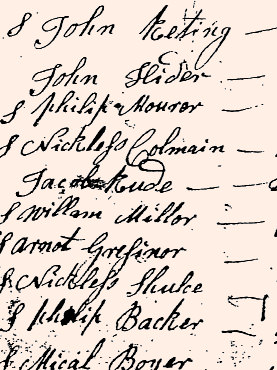 John Keting
John Slider
philip Mourer
Nickless Colmain
Jacob Rude
Willam Millor
arnot Gresinor
Nickless Shuke
philip Backer
Mical Boyer